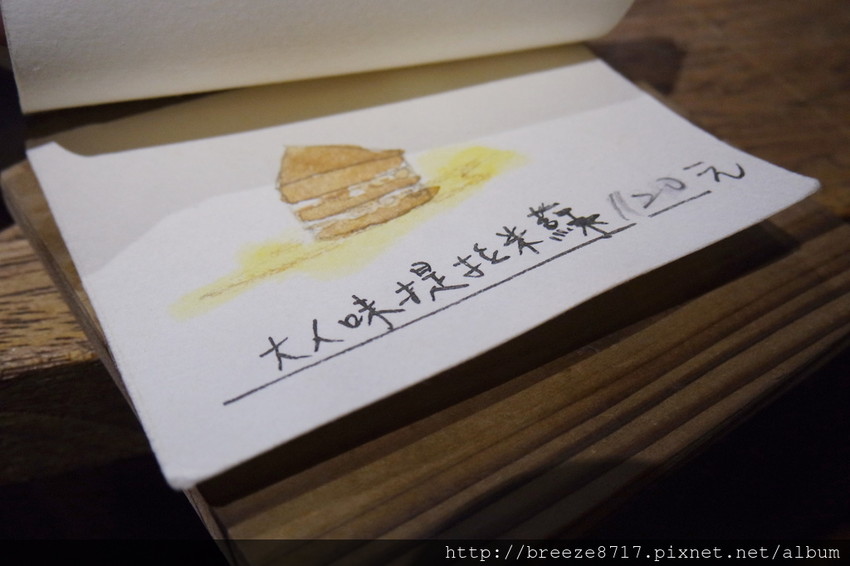 大人味提拉米蘇 120元
http://breeze8717.pixnet.net/album